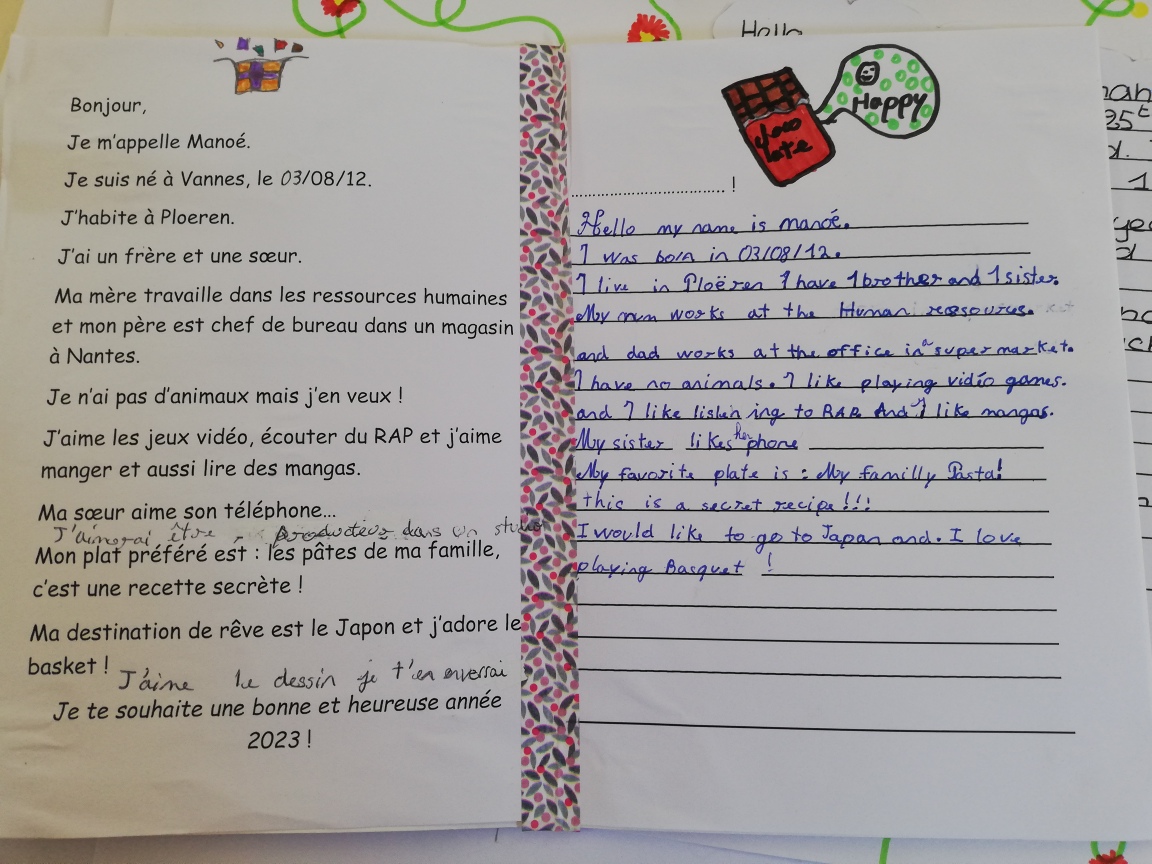 Bonjour,
Je m'appelle Manoé.
Je suis né à Vannes, le 03/08/12.
J'habite à Ploeren.
J'ai un frère et une sœur.
Ma mère travaille dans les ressources humaines
et mon père est chef de bureau dans un magasin
à Nantes.
Je n'ai pas d'animaux mais j'en veux !
J'aime les jeux vidéo, écouter du RAP et j'aime
manger et aussi lire des mangas.
Ma sœur aime son téléphone...
J'aimerai être producteur dans un studio
Mon plat préféré est : les pâtes de ma famille,
c'est une recette secrète !
Ma destination de rêve est le Japon et j'adore le
basket !
J'aime le dessin je t'en enverrai
Je te souhaite une bonne et heureuse année
2023 !
Choco
late
Happy
.................................... !
Hello my name is manoé.
I was born in 03/08/12.
I live in Ploëren I have 1 brother and 1 sister.
My mum works at the Human resources.
and dad works at the office in a super market.
I have no animals. I like playing vidéo games.
and I like listen ing to RAP. And I like mangas.
My sister likes her phone
My favorite plate is : My familly Pasta!
this is a secret recipe!!!
I would like to go to Japan and. I love
playing Basquet !
Hello